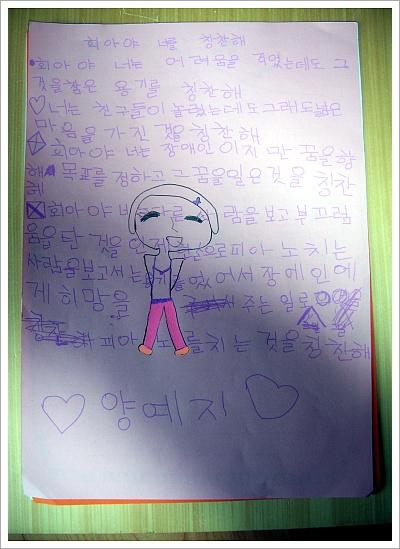 희아야 너를 칭찬해
희아야 너는 어려움을 겪었는데도 그
것을 참은 용기를 칭찬해
너는 친구들이 놀렸는데도 그래도 넓은
마음을 가진 것을 칭찬해
희아야 너는 장애인이지만 꿈을 향
해 목표를 정하고 그 꿈을 일은 것을 칭찬
해
희아야 람을 보고 부끄럼
움을 탄 것을 으로 피아노 치는
사람을 보고서는 었어서 장에인에
게 희망을 주는 일로
피아노를 치는 것을 칭찬해
양예지